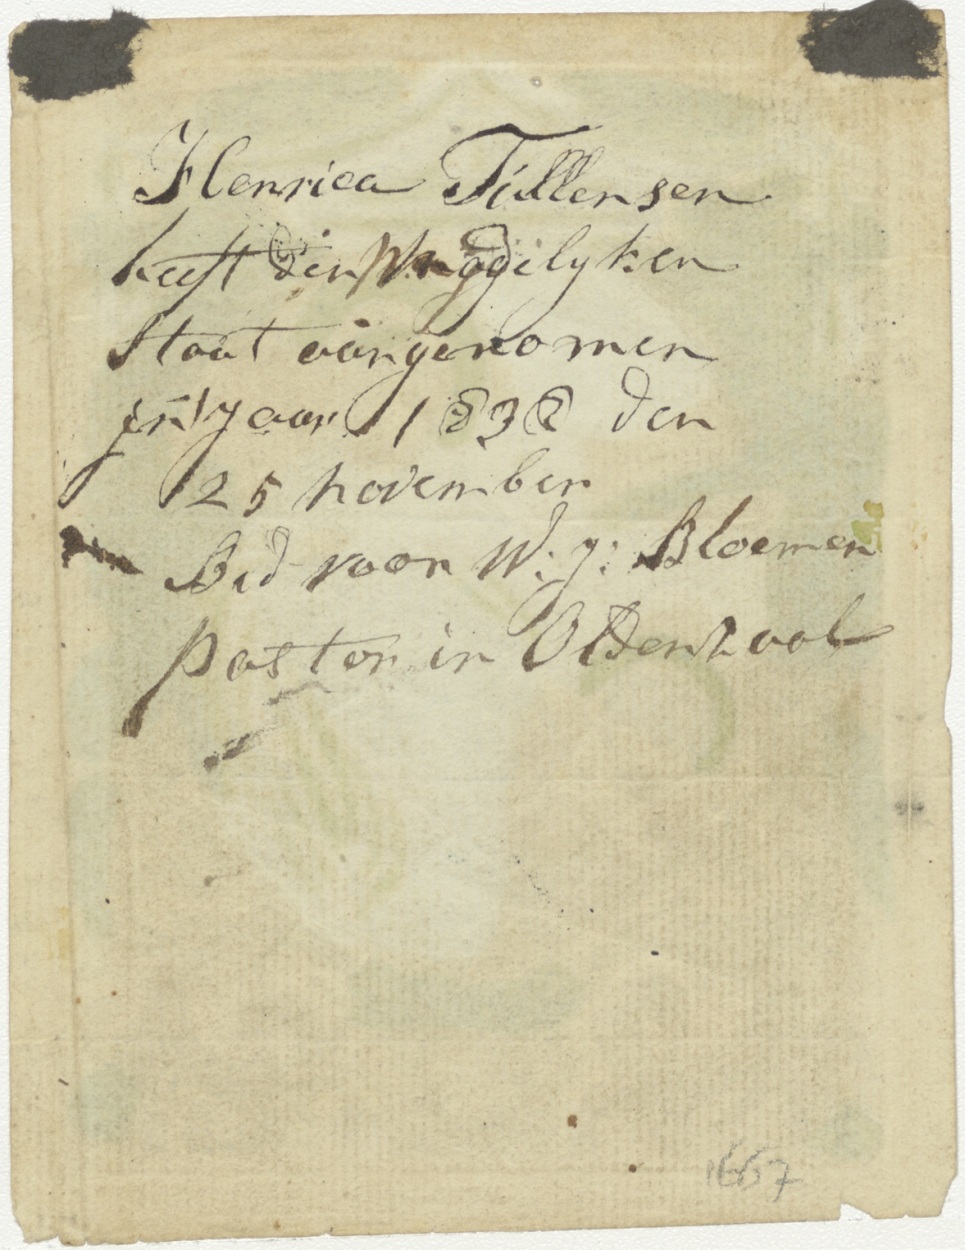 Henrica Tillensen
heeft den Maggdelyken
Staat aangenomen
in 't jaar 1838 den
25 november
Bid voor W: j: Bloemen
Pastor in Oldenzaal
1667